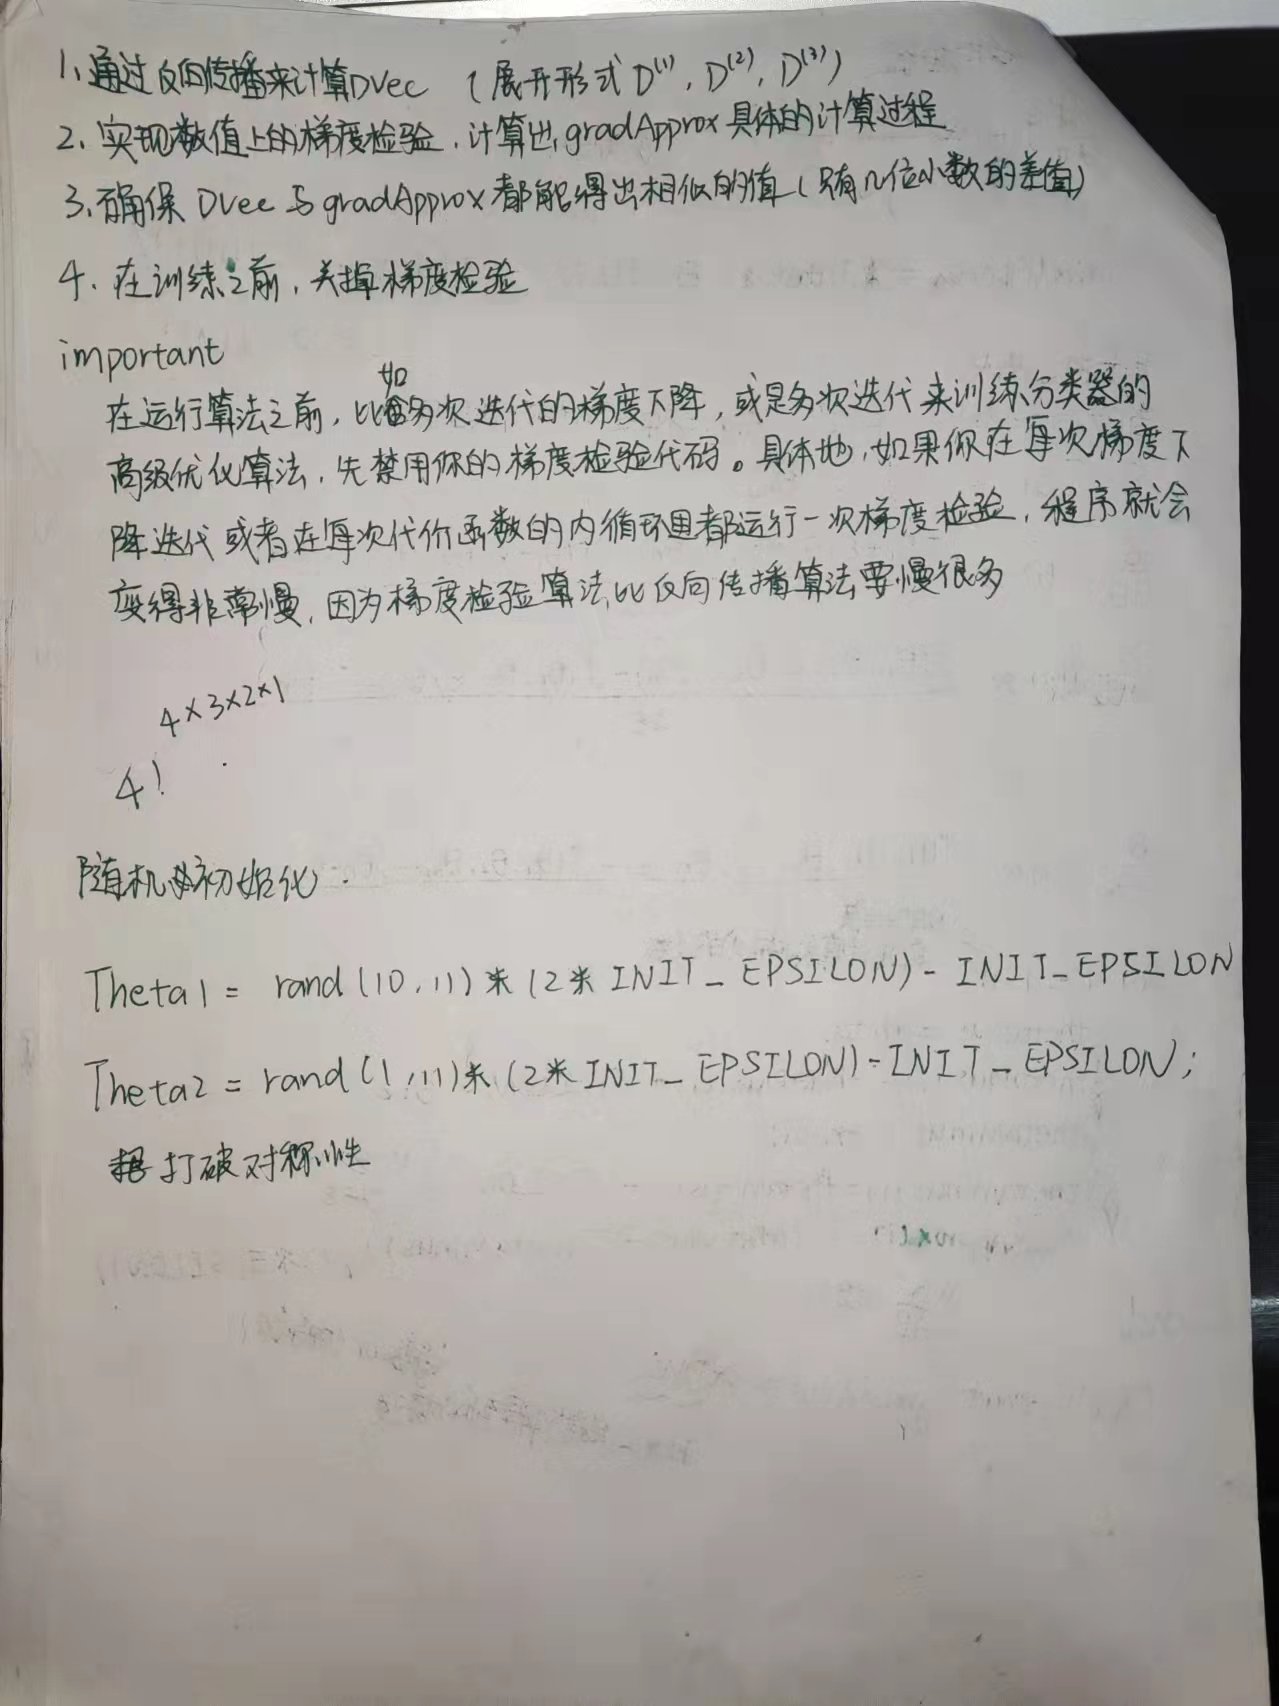 1、通过反向传播来计算DVec （展开形式 D⁽¹⁾, D⁽²⁾, D⁽³⁾）
2、实现数值上的梯度检验，计算出gradApprox具体的计算过程
3、确保 DVec 与 gradApprox 都能得出相似的值（只有几位小数的差值）
4、在训练之前，关掉梯度检验
important
在运行算法之前，比如多次迭代的梯度下降，或是多次迭代来训练分类器的
高级优化算法，先禁用你的梯度检验代码。具体地，如果你在每次梯度下
降迭代或者在每次代价函数的内循环里都运行一次梯度检验，程序就会
变得非常慢，因为梯度检验算法比反向传播算法要慢很多
4×3×2×1
4!
随机初始化
Theta1 = rand(10,11)*(2*INIT_EPSILON)-INIT_EPSILON
Theta2 = rand(1,11)*(2*INIT_EPSILON)-INIT_EPSILON;
打破对称性